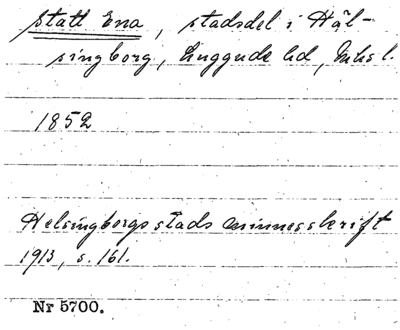 Statt Ena, stadsdel i Häl-
singborg, Luggude hd, Mlhs l.
1852
Helsingborgs stads minnesskrift
1913, s. 161.
Nr 5700.